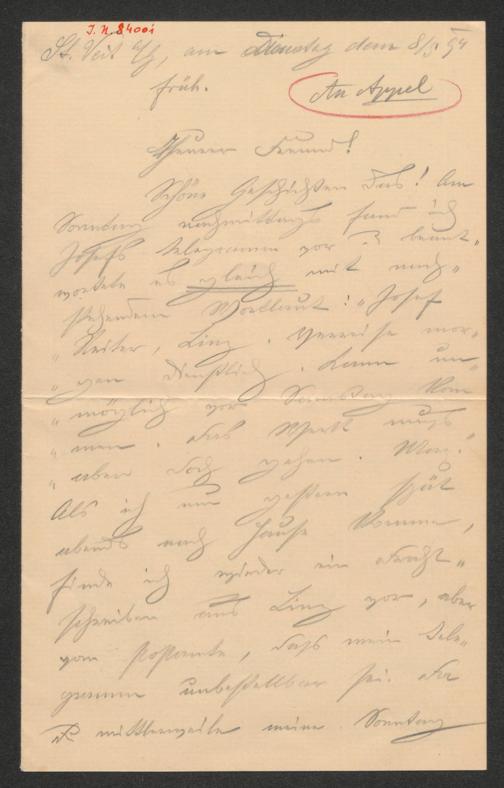 J.N. 84001
St. Veit a/g, am Dienstag dem 8/5 94
früh.
An Appel
Theurer Freund!
Schöne Geschichten das! Am
Sonntag nachmittags fand ich
Josefs telegramm vor & beant-
wortete es gleich mit nach-
stehendem Wortlaut: "Josef
"Reiter, Linz. Verreise mor-
"gen dienstlich. Kann un-
"möglich vor Samstag kom-
"men. Das Werk muss
"aber doch gehen. Max."
Als ich nun gestern spät
abends nach Hause komme,
finde ich wieder ein
schreiben aus Linz vor, aber
vom Postamte, daß mein Tele-
gramm unbestellbar sei. Da
mittlerweile meine Sonntag